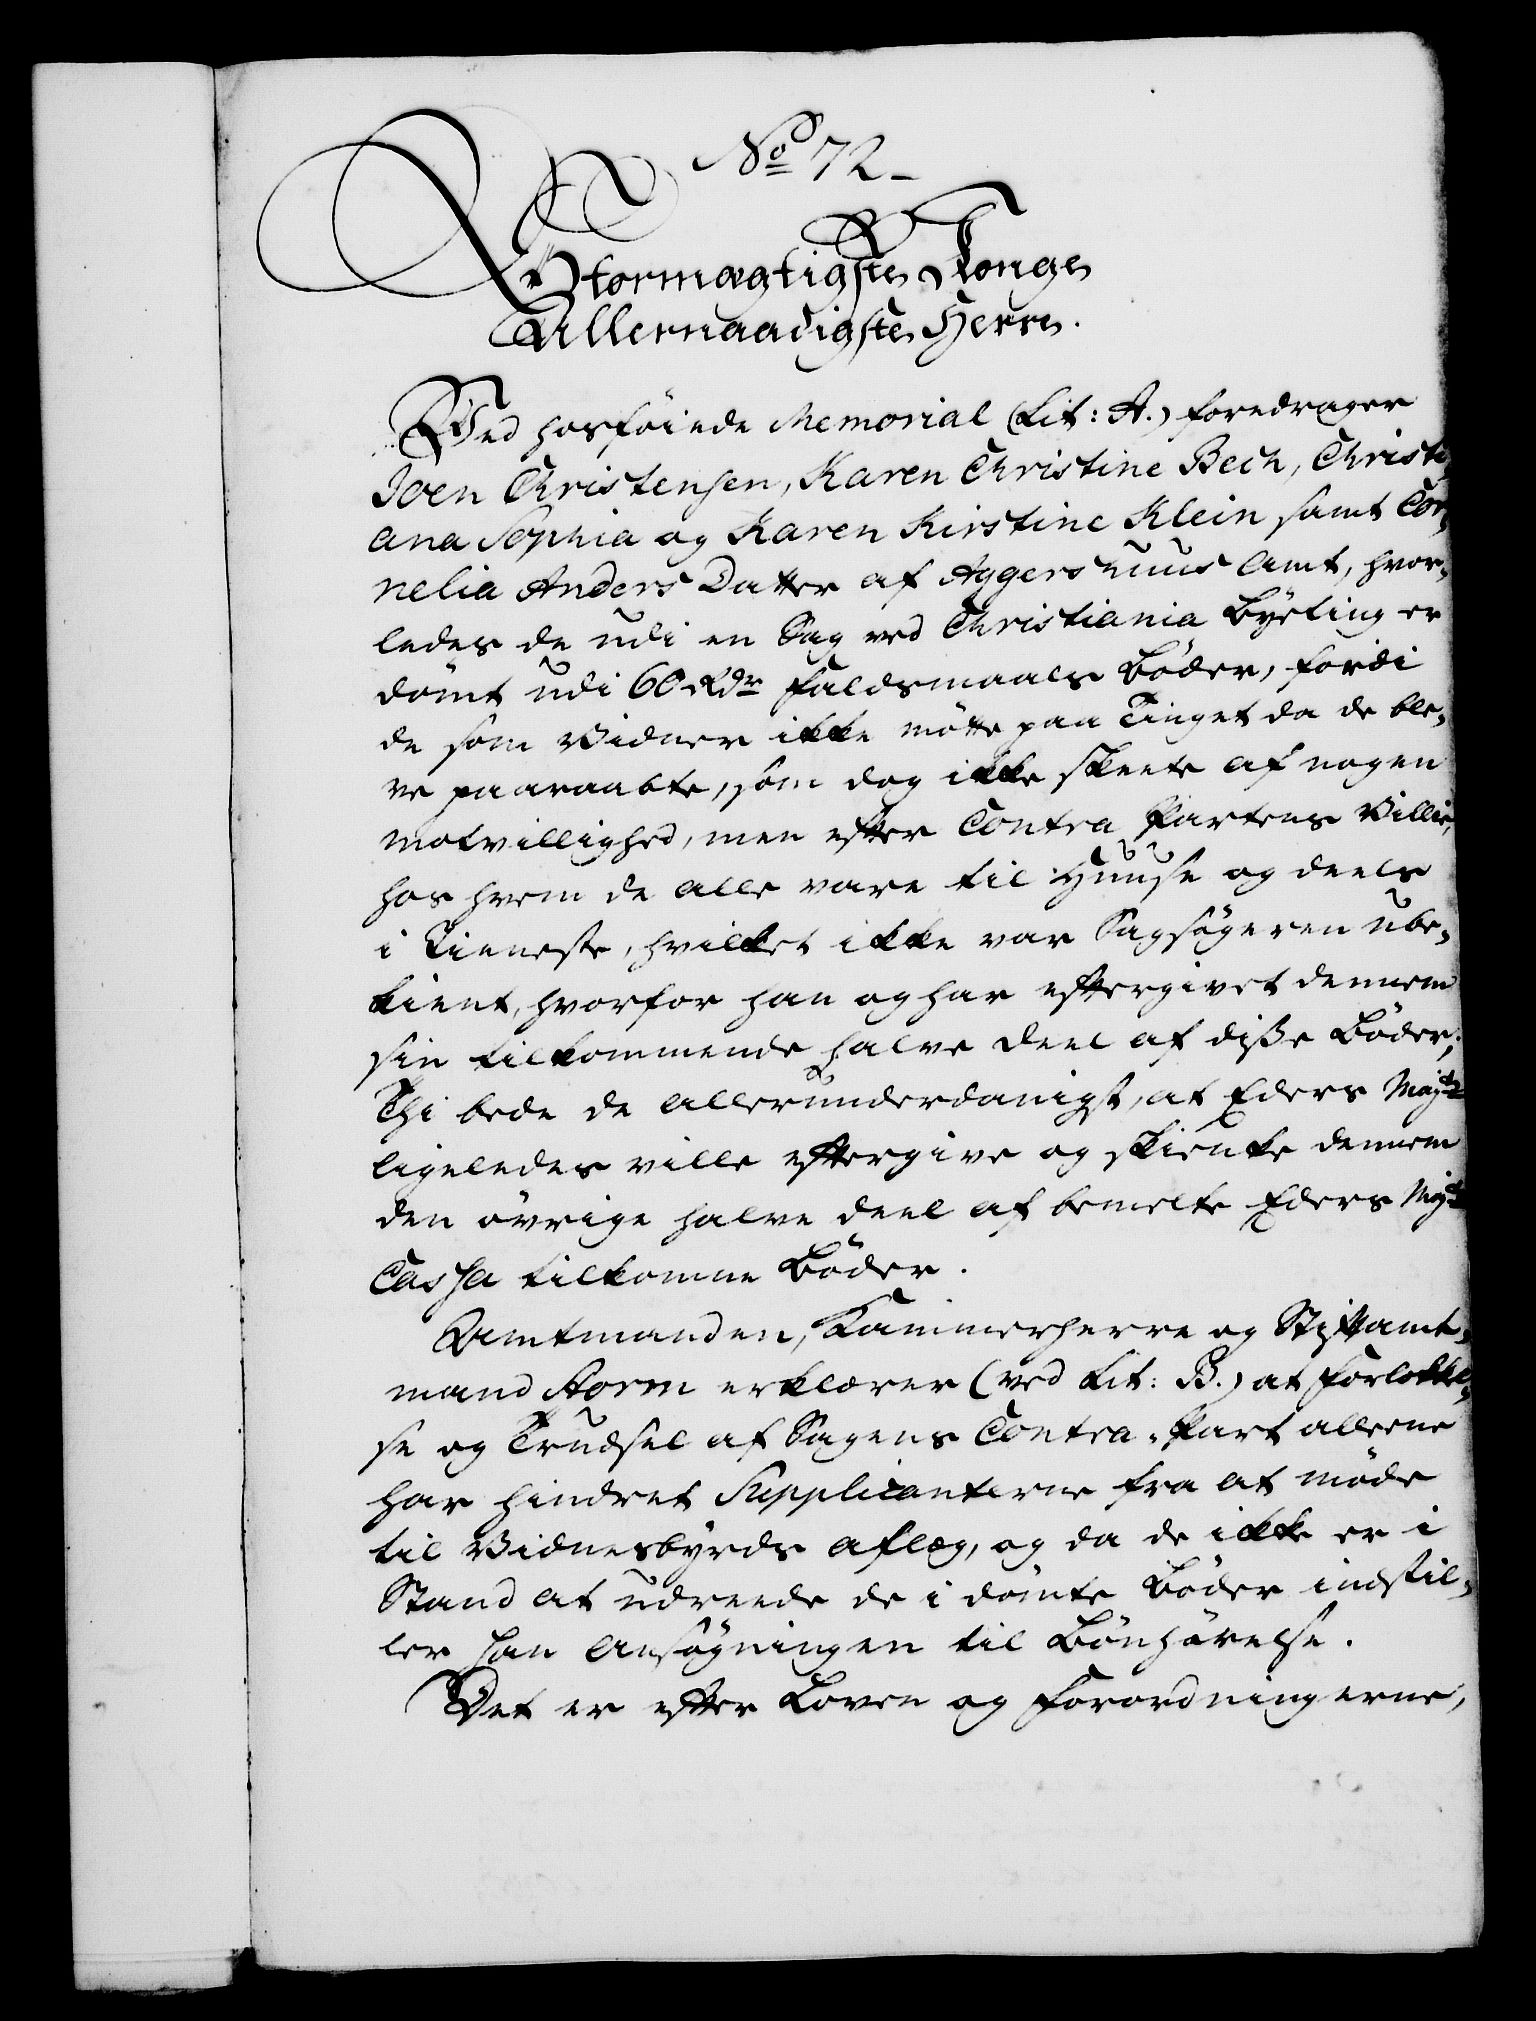 No 72_
Stormægtigste Konge
Allernaadigste Herre.
Ved hosföiede Memorial (Lit: A.) foredrager
Joen Christensen, Karen Christine Bech, Christi,
ana Sophia og Karen Kirstine Klein samt Cor,
nelia Anders Datter af Aggershuus Amt, hvor,
ledes de udi en Sag ved Christiania Byeting er
dömt udi 60 Rdr Faldsmaals Böder, fordi
de som Vidner ikke mötte paa Tinget da de ble,
ve paaraabte, som dog ikke skeete af nogen
motvillighed, men efter Contra Partens Villie,
hos hvem de alle vare til Huuse og deels
i Tieneste, hvilket ikke var Sagsögeren ube,
kient, hvorfor han og har eftergivet dennem
sin tilkommende halve Deel af disse Böder;
Thi bede de allerunderdanigst, at Eders Majts
ligeledes ville eftergive og skienke dennem
den övrige halve deel af bemelte Eders Majts
Cassa tilkomne Böder.
Amtmanden, Kammerherre og Stiftamt,
mand Storm erklærer (ved Lit: B.) at Forlokkel,
se og Trudsel af Sagens Contra-Part alleene
har hindret Supplicanterne fra at möde
til Vidnesbyrds aflæg, og da de ikke er i
Stand at udreede de i dömte Böder indstil,
ler han Ansögningen til Bönhörelse.
Det er efter Loven og Forordningerne,